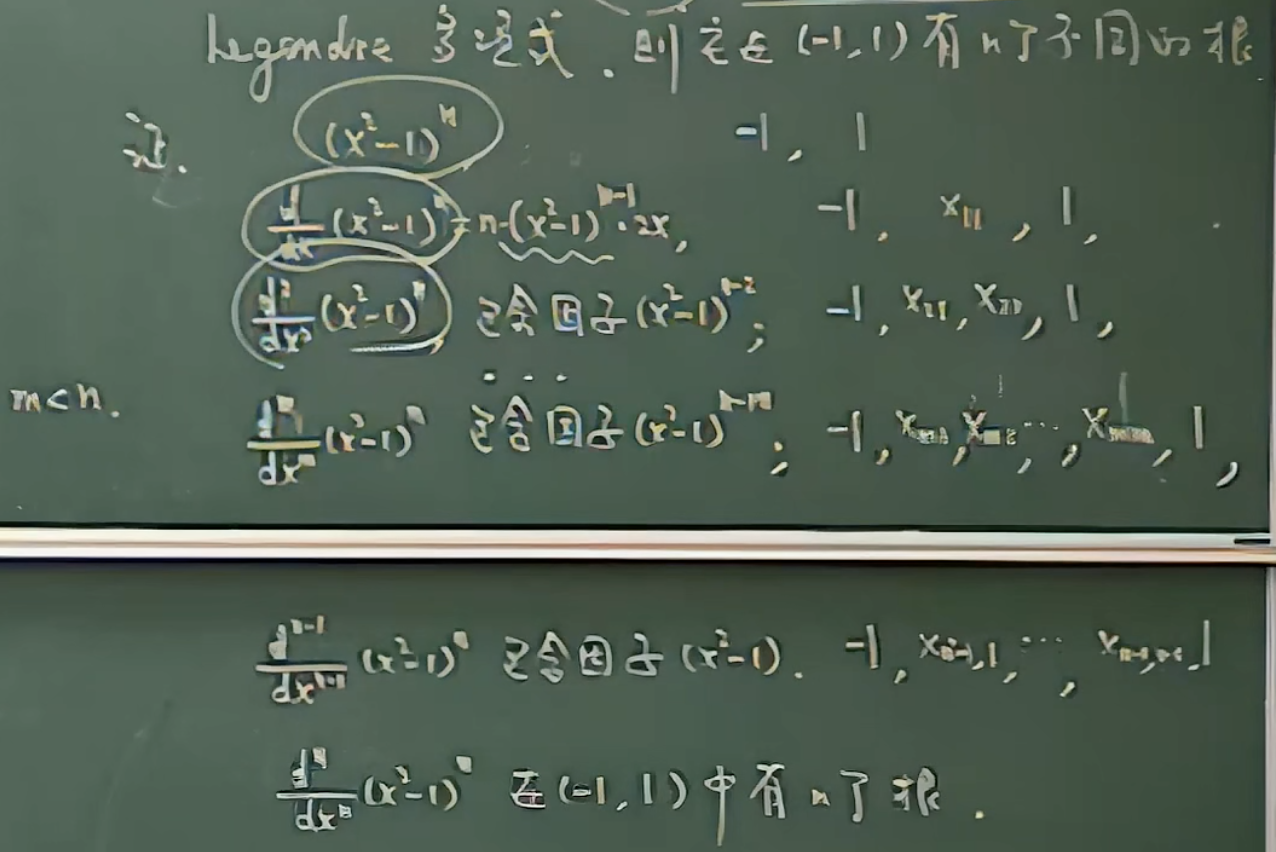 Legendre 多项式. 则它在 (-1,1) 有 n 个不同的根
证. (x²-1)ⁿ -1, 1
d/dx (x²-1)ⁿ = n·(x²-1)ⁿ⁻¹·2x, -1, x₁₁, 1,
d²/dx² (x²-1)ⁿ 包含因子 (x²-1)ⁿ⁻²; -1, x₂₁, x₂₂, 1,
...
m<n. dᵐ/dxᵐ (x²-1)ⁿ 包含因子 (x²-1)ⁿ⁻ᵐ; -1, xₘ₁, xₘ₂, ..., xₘₘ, 1,
dⁿ⁻¹/dxⁿ⁻¹ (x²-1)ⁿ 包含因子 (x²-1). -1, xₙ₋₁,₁, ..., xₙ₋₁,ₙ₋₁, 1
dⁿ/dxⁿ (x²-1)ⁿ 在 (-1,1) 中有 n 个根.